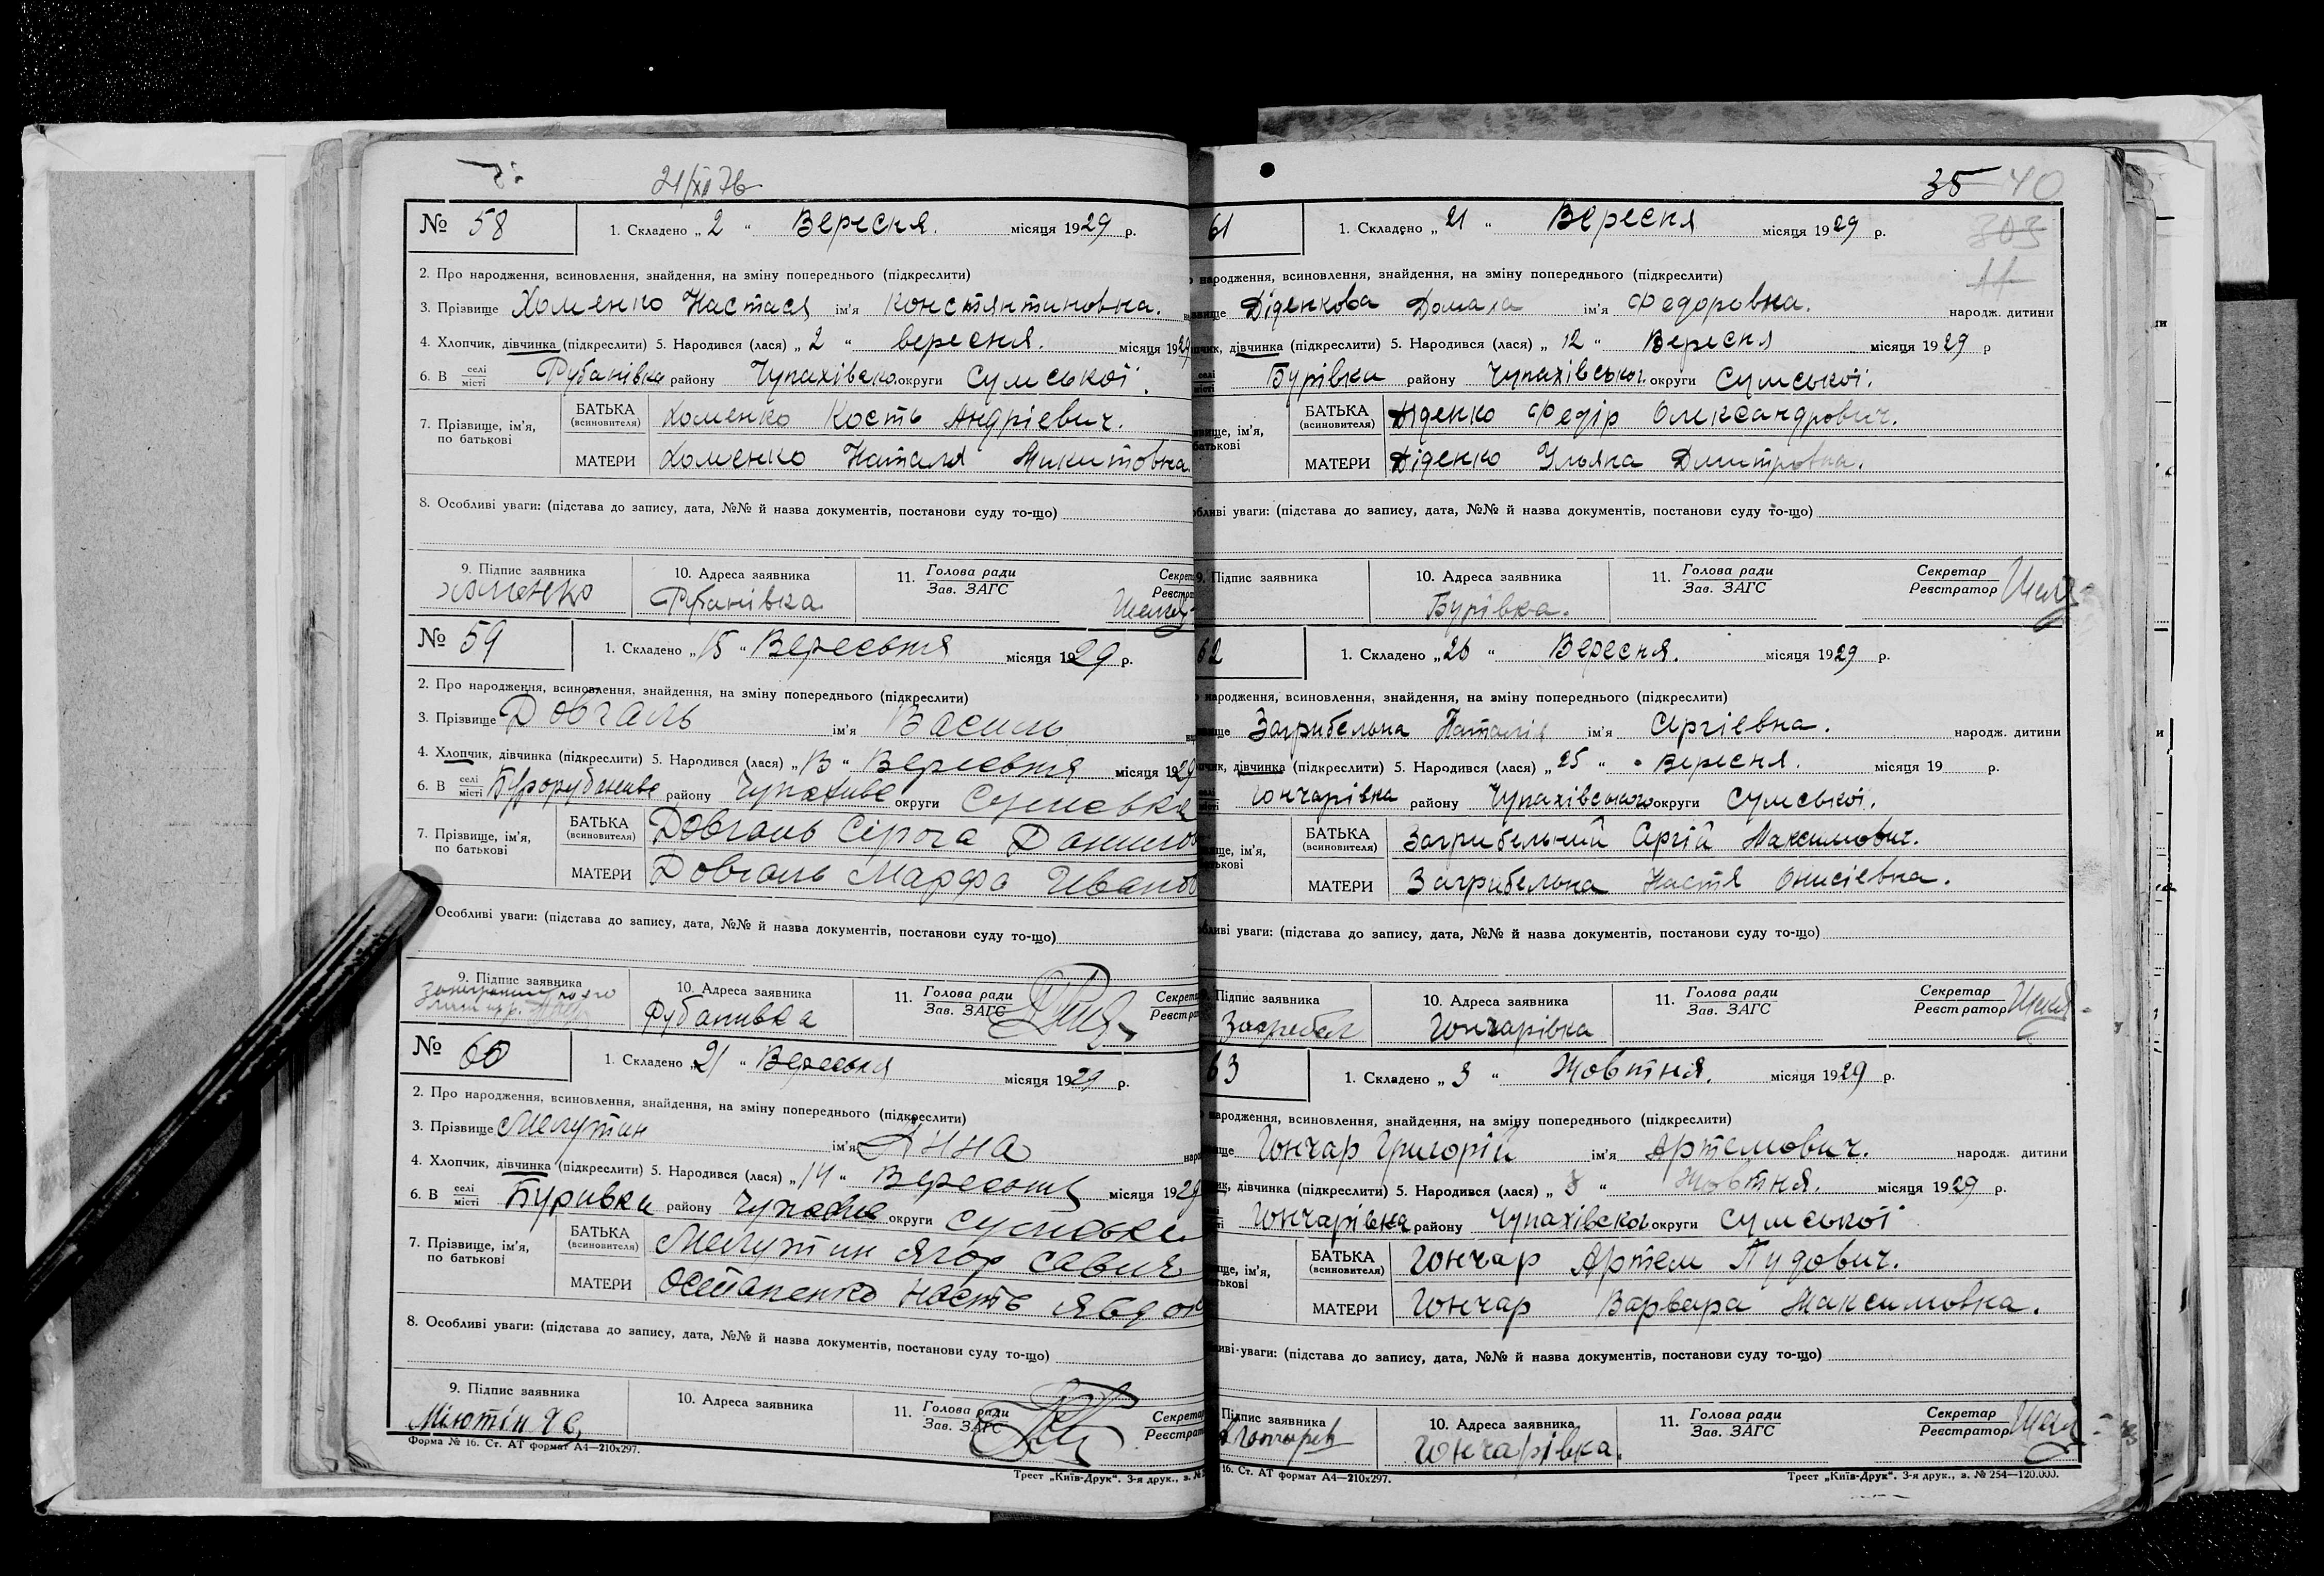 21/XII 76
№ 58
1. Складено „ 2 “ Вересня. місяця 1929 р.
2. Про народження, всиновлення, знайдення, на зміну попереднього (підкреслити)
3. Прізвище Хоменко Настася ім'я Констянтиновна.
4. Хлопчик, дівчинка (підкреслити) 5. Народився (лася) „ 2 “ вересня. місяця 1929
6. В селі/місті Рубанівка району Чупахівско. округи Сумської.
7. Прізвище, ім'я, по батькові
БАТЬКА (всиновителя) Хоменко Кость Андріевич.
МАТЕРИ Хоменко Наталя Микитовна
8. Особливі уваги: (підстава до запису, дата, №№ й назва документів, постанови суду то-що)
9. Підпис заявника 10. Адреса заявника 11. Голова ради / Зав. ЗАГС
Хоменко Рубанівка
№ 59
1. Складено „ 15 “ Вересьня місяця 1929 р.
2. Про народження, всиновлення, знайдення, на зміну попереднього (підкреслити)
3. Прізвище Довгаль ім'я Василь
4. Хлопчик, дівчинка (підкреслити) 5. Народився (лася) „ “ Вересьня місяця 1929
6. В селі/місті району округи
7. Прізвище, ім'я, по батькові
БАТЬКА (всиновителя) Довгаль Сірога
МАТЕРИ Довгаль Марфа
Особливі уваги: (підстава до запису, дата, №№ й назва документів, постанови суду то-що)
9. Підпис заявника 10. Адреса заявника 11. Голова ради / Зав. ЗАГС
Рубанивка
№ 60
1. Складено „ 21 “ Вересьня місяця 1929 р.
2. Про народження, всиновлення, знайдення, на зміну попереднього (підкреслити)
3. Прізвище ім'я Анна
4. Хлопчик, дівчинка (підкреслити) 5. Народився (лася) „ 14 “ Вересьня місяця 1929
6. В селі/місті Буривки району округи
7. Прізвище, ім'я, по батькові
БАТЬКА (всиновителя) Ягор Савич
МАТЕРИ Остапенко Насть
8. Особливі уваги: (підстава до запису, дата, №№ й назва документів, постанови суду то-що)
9. Підпис заявника 10. Адреса заявника 11. Голова ради / Зав. ЗАГС
Мілютін
Форма № 16. Ст. АТ формат А4—210х297.
Трест „Київ-Друк“. 3-я друк., з. №
35 40
303
61
1. Складено „ 21 “ Вересня місяця 1929 р.
народження, всиновлення, знайдення, на зміну попереднього (підкреслити)
Діденкова Домаха ім'я Федоровна. народж. дитини
дівчинка (підкреслити) 5. Народився (лася) „ 12 “ Вересня місяця 1929 р
Бурівки району Чупахівського округи Сумської.
БАТЬКА (всиновителя) Діденко Федір Олександрович.
МАТЕРИ Діденко Уляна Дмитровна.
уваги: (підстава до запису, дата, №№ й назва документів, постанови суду то-що)
9. Підпис заявника 10. Адреса заявника 11. Голова ради / Зав. ЗАГС Секретар / Реєстратор
Бурівка.
62
1. Складено „ 26 “ Вересня. місяця 1929 р.
народження, всиновлення, знайдення, на зміну попереднього (підкреслити)
Загрибельна Наталія ім'я Сргіевна. народж. дитини
дівчинка (підкреслити) 5. Народився (лася) „ 25 “ Вересня. місяця 19 р.
Гончарівка району Чупахівського округи Сумської.
БАТЬКА (всиновителя) Загрибельний Сргій Максимович.
МАТЕРИ Загрибельна Настя Онисіевна.
уваги: (підстава до запису, дата, №№ й назва документів, постанови суду то-що)
Підпис заявника 10. Адреса заявника 11. Голова ради / Зав. ЗАГС Секретар / Реєстратор
Гончарівка
63
1. Складено „ 3 “ Жовтня. місяця 1929 р.
народження, всиновлення, знайдення, на зміну попереднього (підкреслити)
Гончар Григорій ім'я Артемович. народж. дитини
дівчинка (підкреслити) 5. Народився (лася) „ 3 “ Жовтня. місяця 1929 р.
Гончарівка району Чупахівског. округи Сумської
БАТЬКА (всиновителя) Гончар Артем Пудович.
МАТЕРИ Гончар Варвара Максимовна.
уваги: (підстава до запису, дата, №№ й назва документів, постанови суду то-що)
Підпис заявника 10. Адреса заявника 11. Голова ради / Зав. ЗАГС Секретар / Реєстратор
Гончарівка.
16. Ст. АТ формат А4—210х297.
Трест „Київ-Друк“. 3-я друк., з. № 254—120.000.